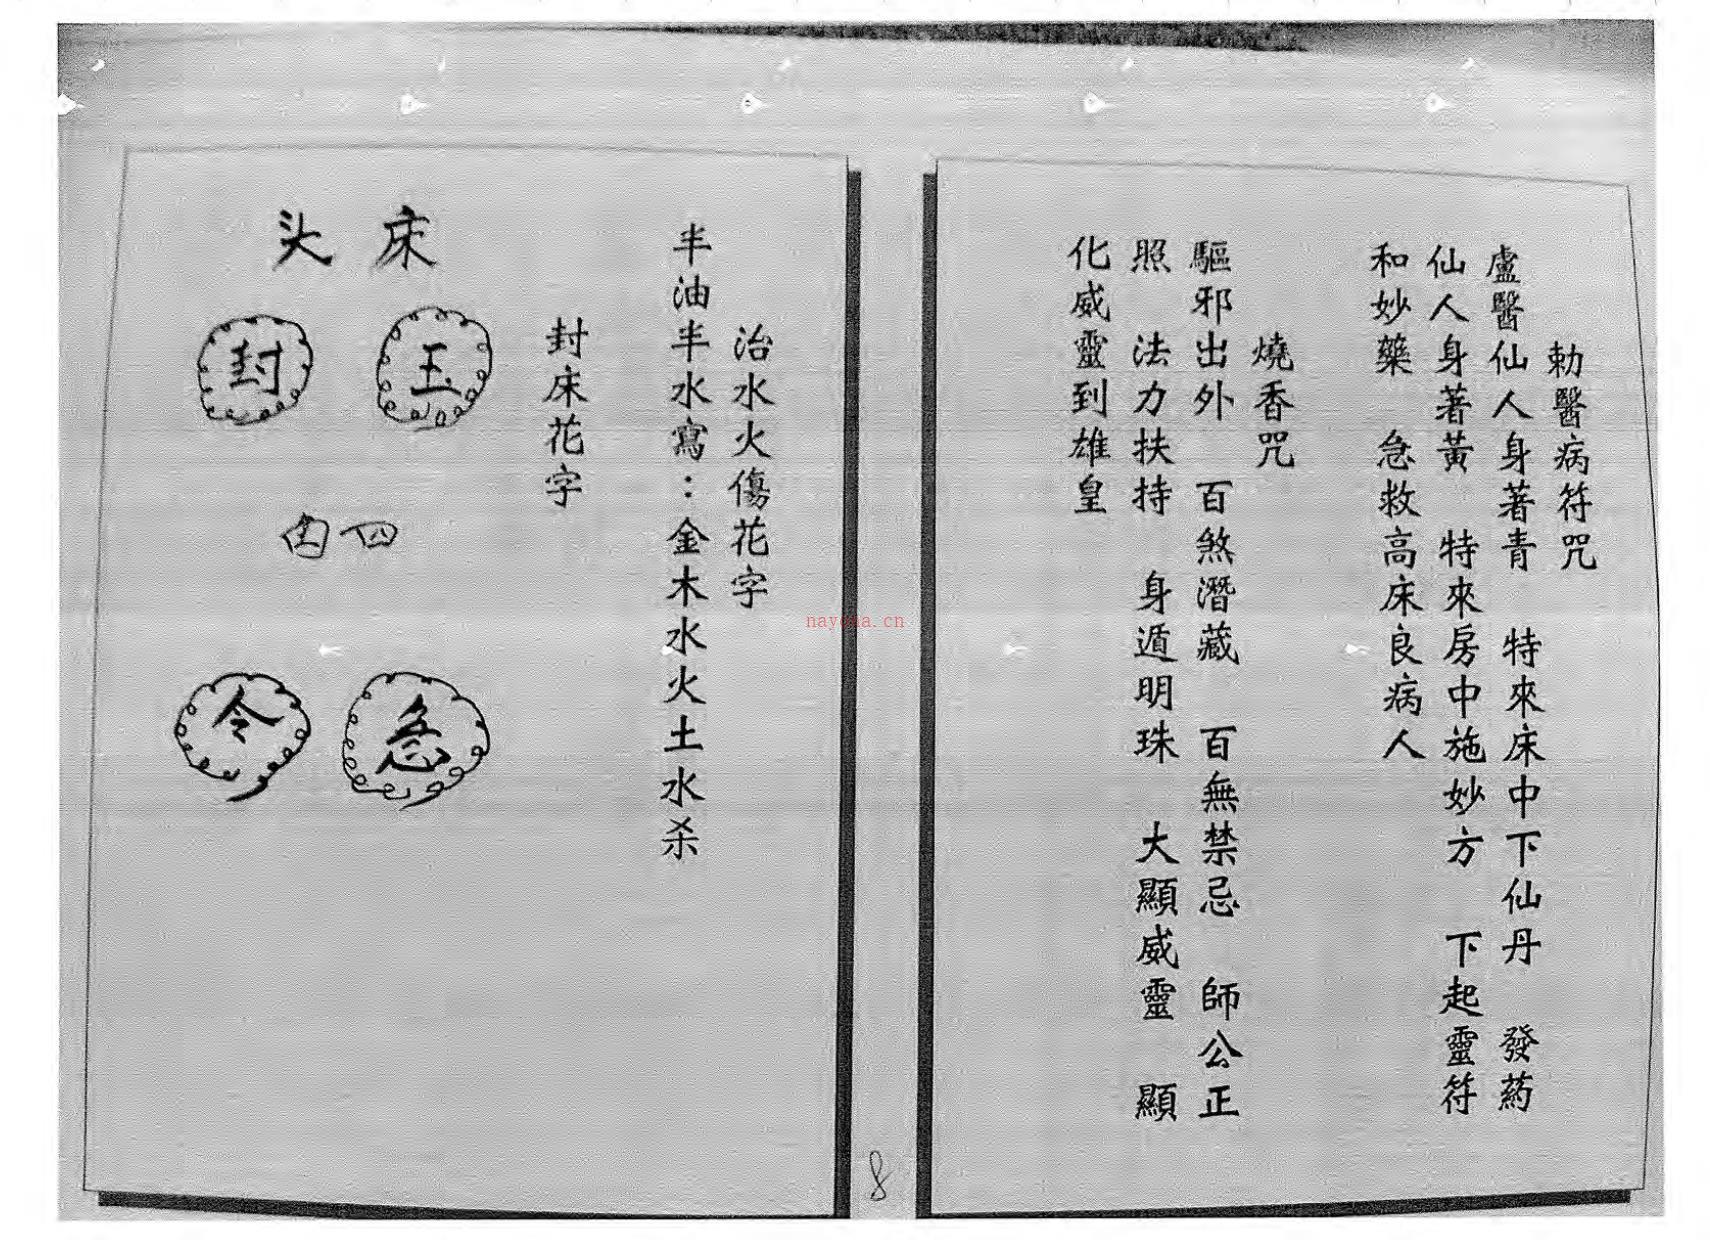 勅醫病符咒
盧醫仙人身著青　特來床中下仙丹　發葯
仙人身著黃　特來房中施妙方　下起靈符
和妙藥　急救高床良病人
燒香咒
驅邪出外　百煞潛藏　百無禁忌　師公正
照　法力扶持　身遁明珠　大顯威靈　顯
化威靈到雄皇
治水火傷花字
半油半水寫：金木水火土水杀
封床花字
床头
玉
封
急
令
8
nayona.cn